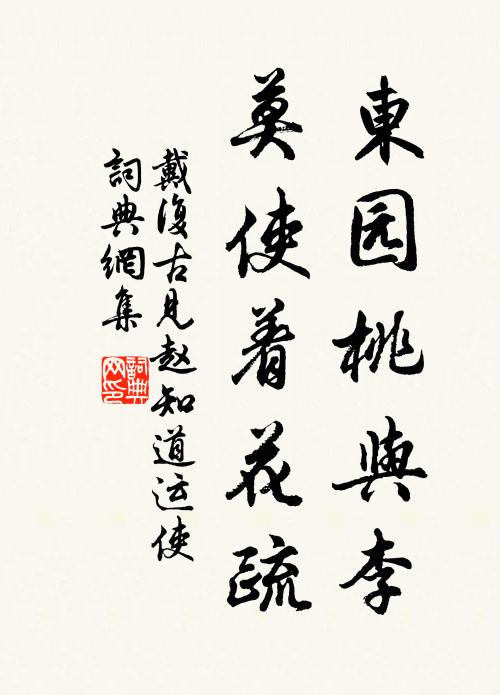 東园桃與李
莫使着花疏
戴復古見赵知道运使
詞典網集
詞典网印